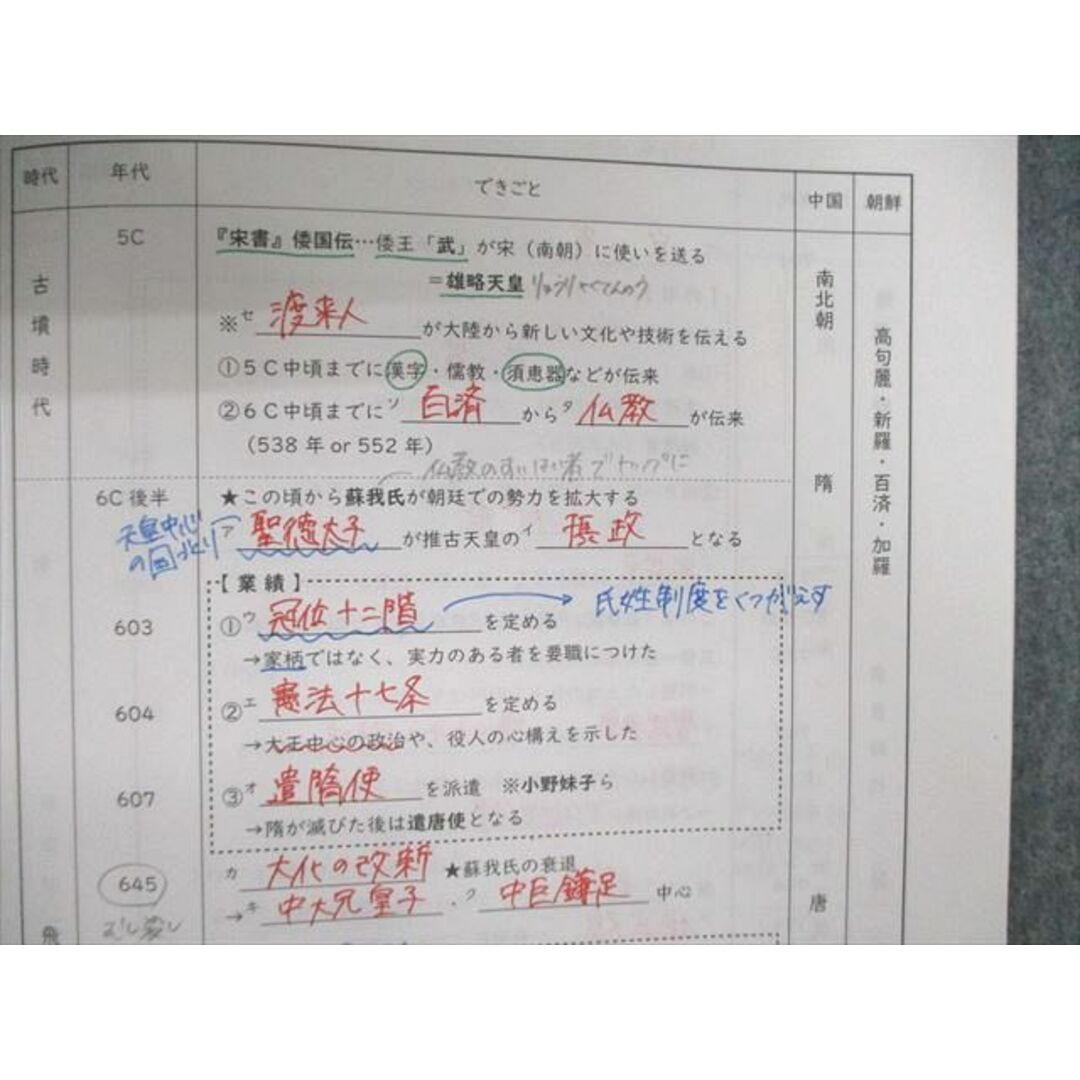 時代 年代 できごと 中国 朝鮮
古墳時代
5C 『宋書』倭国伝…倭王「武」が宋（南朝）に使いを送る
＝雄略天皇
※セ 渡来人 が大陸から新しい文化や技術を伝える
①5C中頃までに漢字・儒教・須恵器などが伝来
②6C中頃までにソ 百済 からタ 仏教 が伝来
（538年 or 552年）
6C後半 ★この頃から蘇我氏が朝廷での勢力を拡大する
天皇中心
ア 聖徳太子 が推古天皇のイ 摂政 となる
【業績】
603 ①ウ 冠位十二階 を定める
氏姓制度をくつがえす
→家柄ではなく、実力のある者を要職につけた
604 ②エ 憲法十七条 を定める
→大王中心の政治や、役人の心構えを示した
607 ③オ 遣隋使 を派遣 ※小野妹子ら
→隋が滅びた後は遣唐使となる
645 カ 大化の改新 ★蘇我氏の衰退
→キ 中大兄皇子 ・ク 中臣鎌足 中心
飛
南北朝
隋
唐
高句麗・新羅・百済・加羅